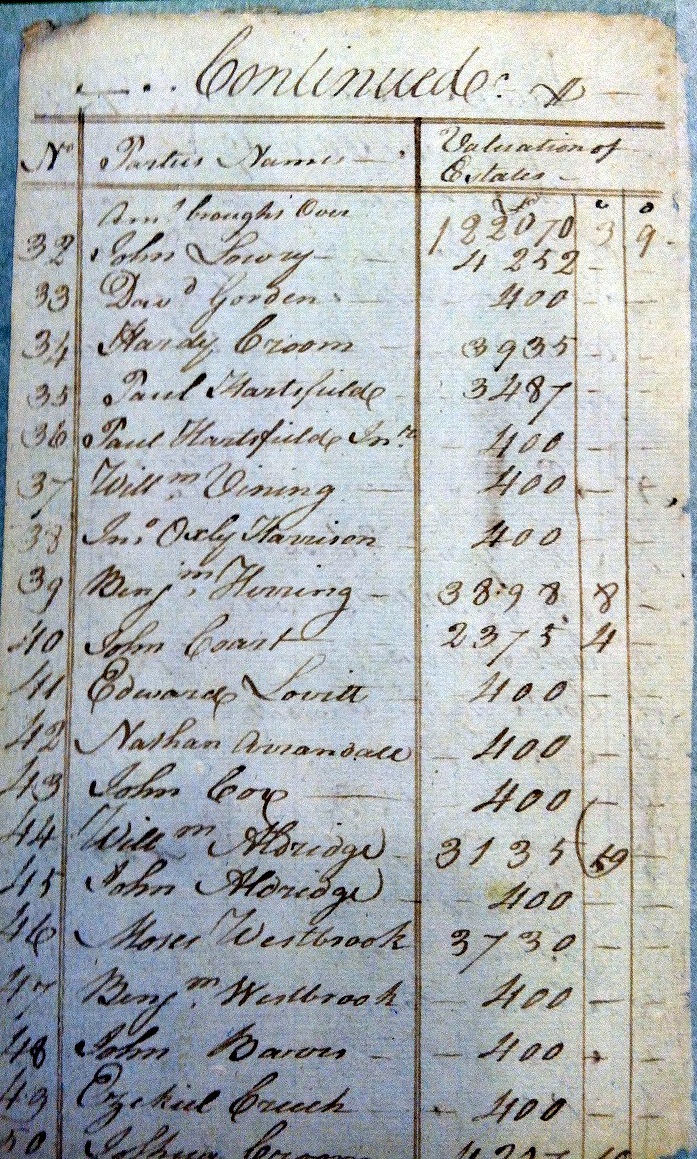 Continued
No Parties Names Valuation of Estates
Amt brought Over 122070 3 9
32 John Lowry 4252 - -
33 Davd Gorden 400 - -
34 Hardy Croom 3935 - -
35 Paul Hartsfield 3487 - -
36 Paul Hartsfield Jnr 400 - -
37 Willm Vining 400 - -
38 Jno Oxly Harrison 400 - -
39 Benjm Herring 3898 8 -
40 John Coart 2375 4 -
41 Edward Lovitt 400 - -
42 Nathan Arrandall 400 - -
43 John Cox 400 - -
44 Willm Aldridge 3135 19 -
45 John Aldridge 400 - -
46 Moses Westbrook 3730 - -
47 Benjm Westbrook 400 - -
48 John 400 - -
49 Ezekiel Creech 400 - -
50 Joshua Croom